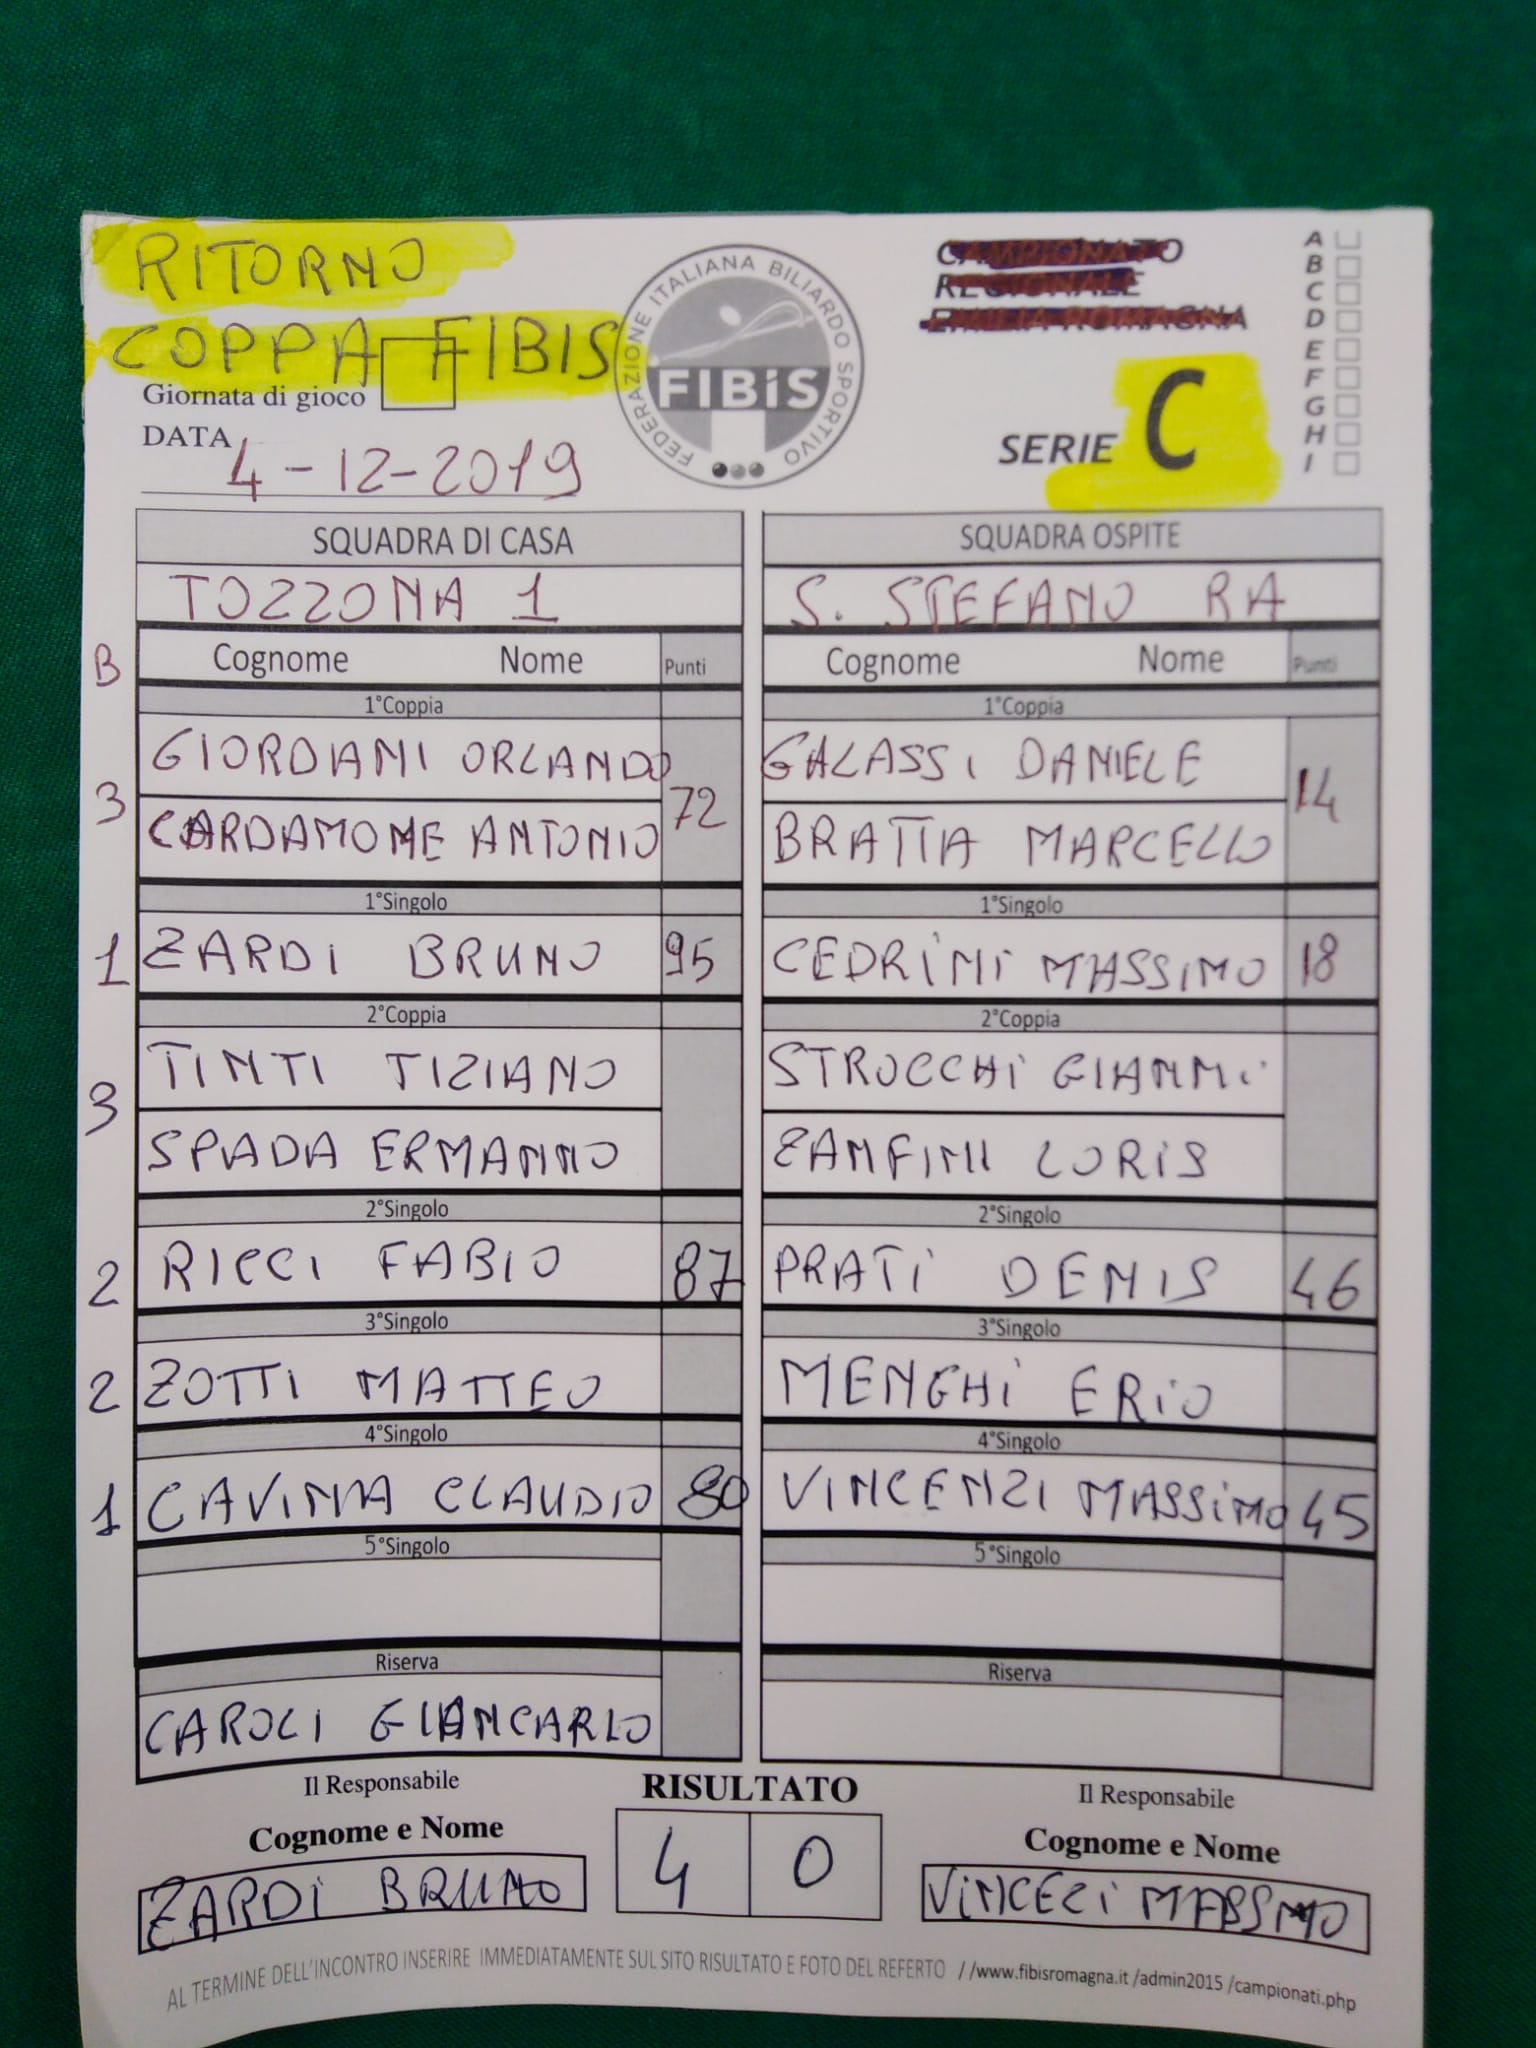 RITORNO
COPPA FIBIS
Giornata di gioco
DATA 4-12-2019
FEDERAZIONE ITALIANA BILIARDO SPORTIVO
FIBiS
CAMPIONATO
REGIONALE
EMILIA ROMAGNA
SERIE C
A
B
C
D
E
F
G
H
I
SQUADRA DI CASA SQUADRA OSPITE
TOZZONA 1 S. STEFANO RA
B Cognome Nome Punti Cognome Nome Punti
1°Coppia 1°Coppia
GIORDANI ORLANDO GALASSI DANIELE
3 72 14
CARDAMONE ANTONIO BRATTA MARCELLO
1°Singolo 1°Singolo
1 ZARDI BRUNO 95 CEDRINI MASSIMO 18
2°Coppia 2°Coppia
TINTI TIZIANO STROCCHI GIANNI
3
SPADA ERMANNO ZANFINI LORIS
2°Singolo 2°Singolo
2 RICCI FABIO 87 PRATI DENIS 46
3°Singolo 3°Singolo
2 ZOTTI MATTEO MENGHI ERIO
4°Singolo 4°Singolo
1 CAVINA CLAUDIO 80 VINCENZI MASSIMO 45
5°Singolo 5°Singolo
Riserva Riserva
CAROLI GIANCARLO
Il Responsabile RISULTATO Il Responsabile
Cognome e Nome 4 0 Cognome e Nome
ZARDI BRUNO VINCEZI MASSIMO
AL TERMINE DELL'INCONTRO INSERIRE IMMEDIATAMENTE SUL SITO RISULTATO E FOTO DEL REFERTO //www.fibisromagna.it /admin2015 /campionati.php